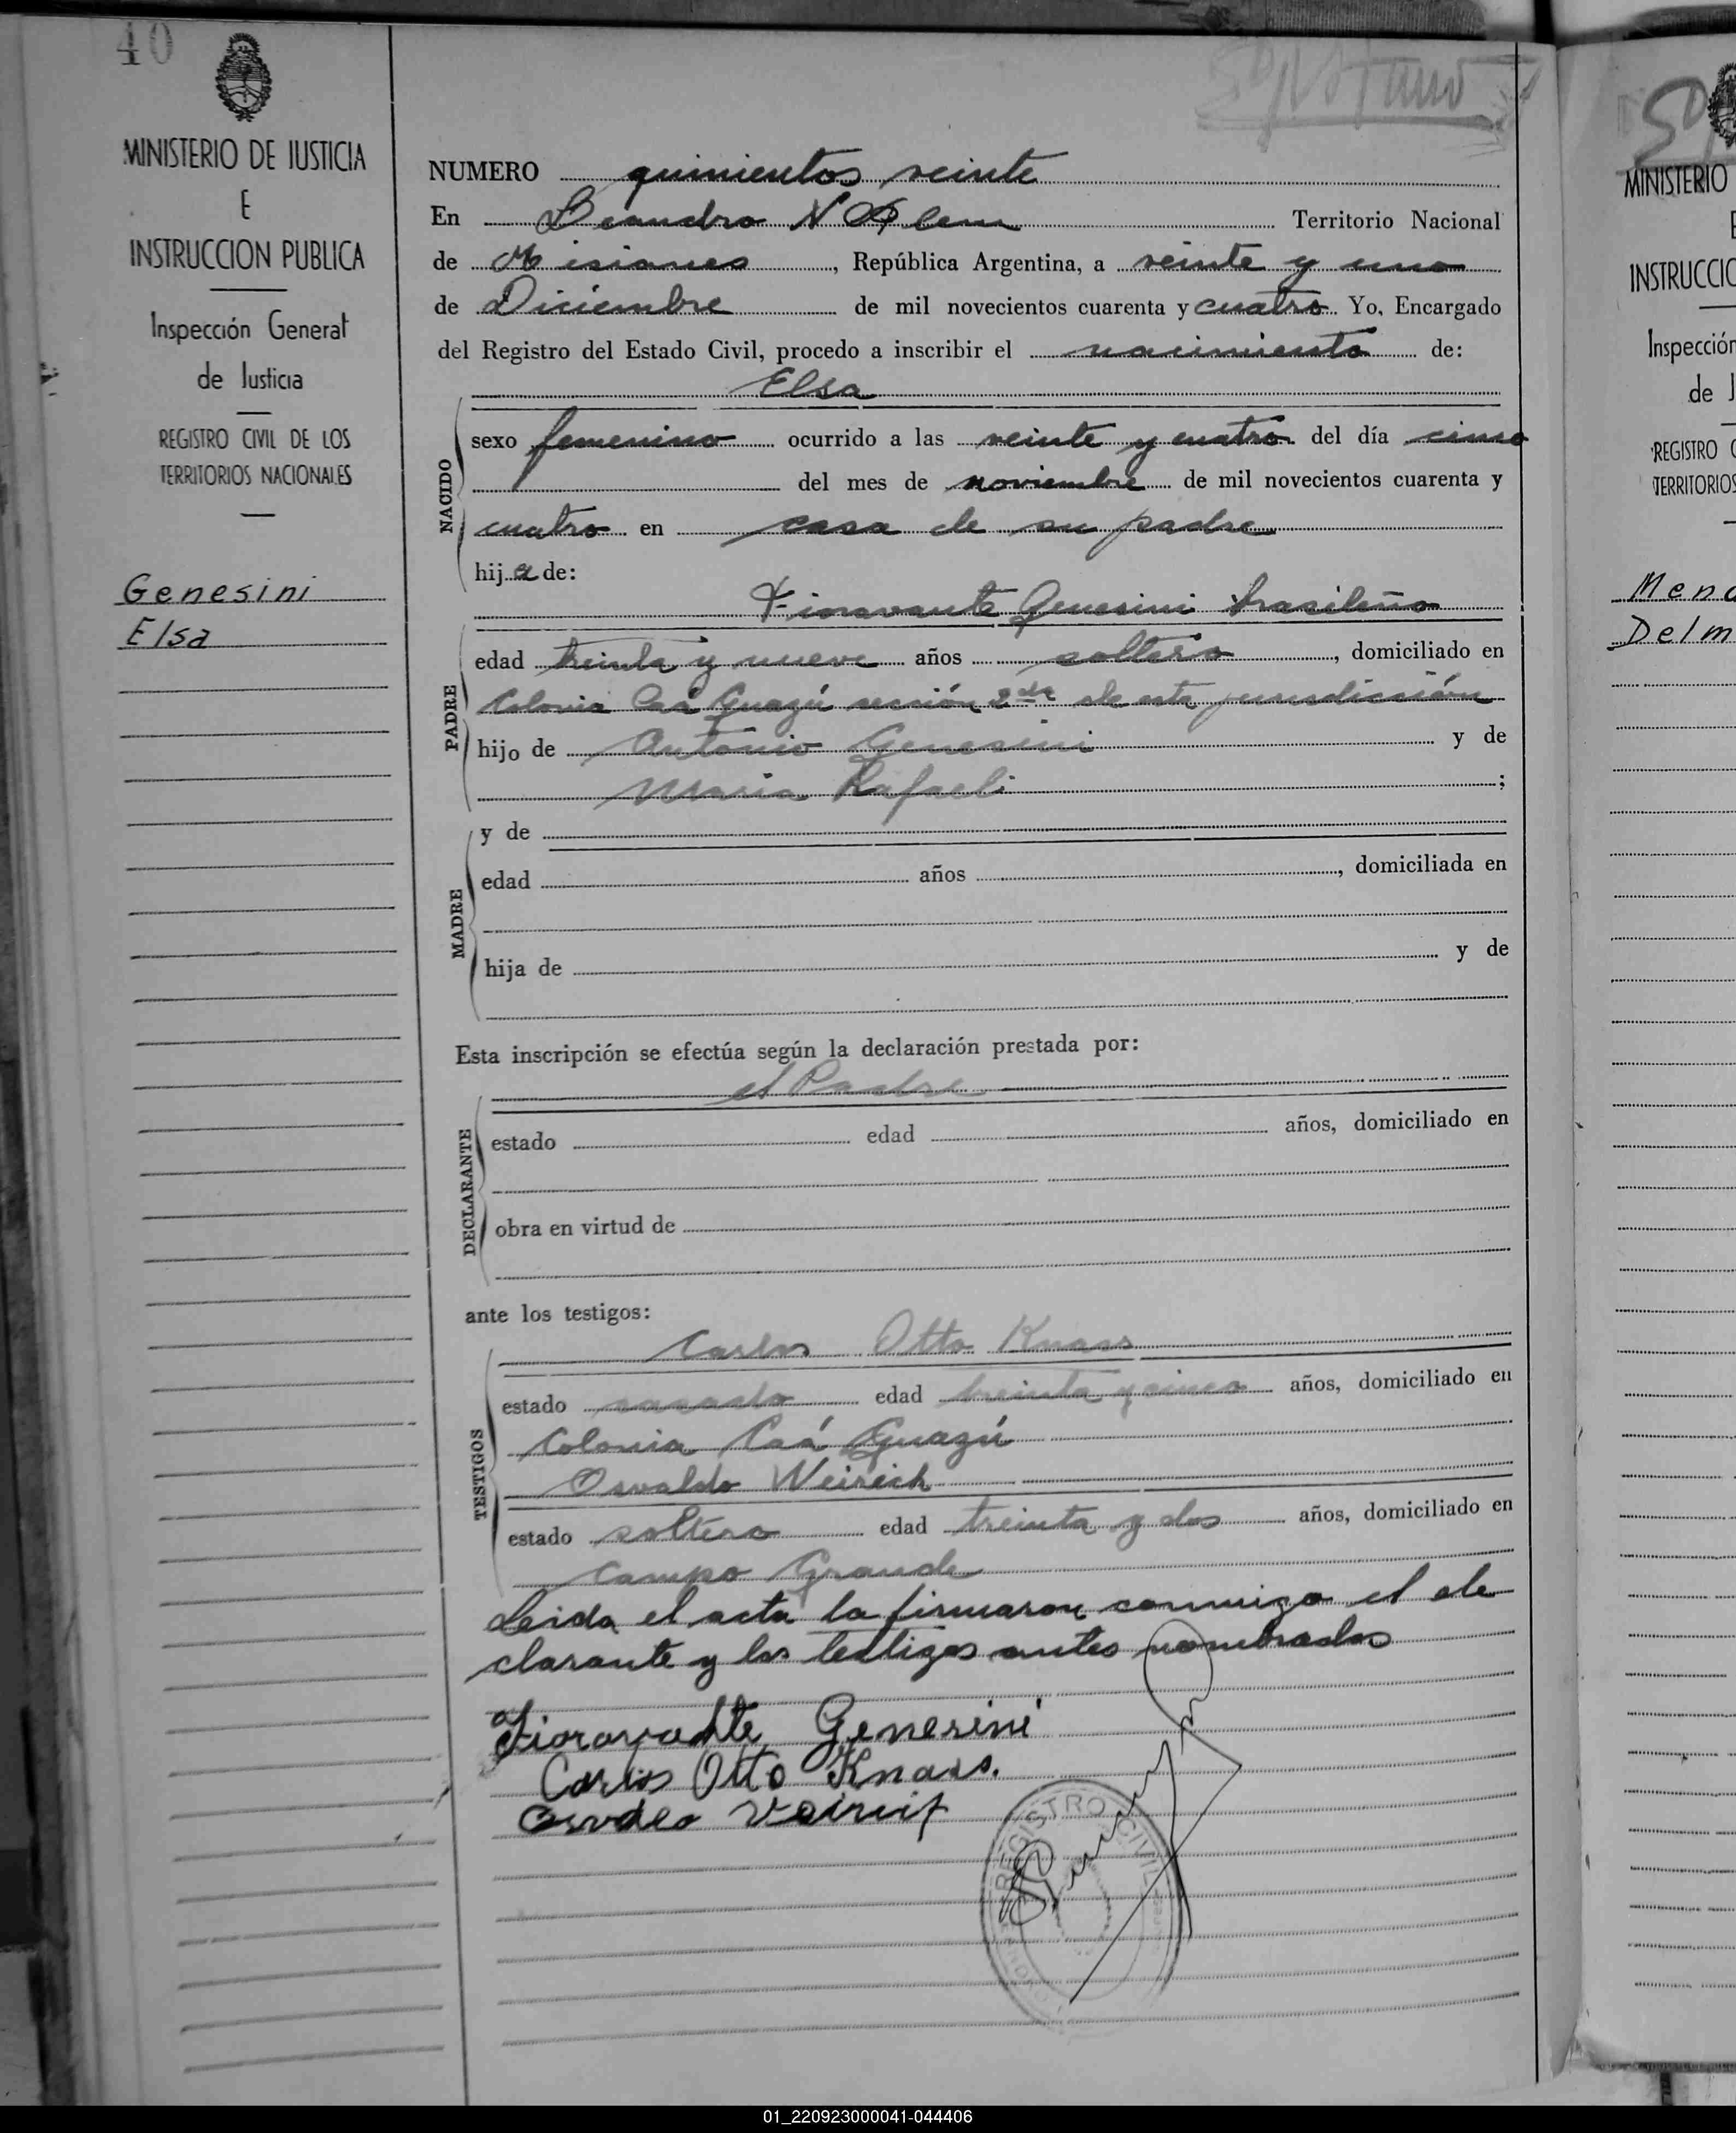 40
MINISTERIO DE JUSTICIA
E
INSTRUCCION PUBLICA
Inspección General
de Justicia
REGISTRO CIVIL DE LOS
TERRITORIOS NACIONALES
Genesini
Elsa
NUMERO quinientos veinte
En Leandro N Alem Territorio Nacional
de Misiones, República Argentina, a veinte y uno
de Diciembre de mil novecientos cuarenta y cuatro. Yo, Encargado
del Registro del Estado Civil, procedo a inscribir el nacimiento de:
Elsa
NACIDO
sexo femenino ocurrido a las veinte y cuatro del día cinco
del mes de noviembre de mil novecientos cuarenta y
cuatro en casa de su padre
hija de:
Fioravante Genesini brasileño
PADRE
edad treinta y nueve años soltero, domiciliado en
Colonia Caá Guazú sección 2da de esta jurisdicción
hijo de Antonio Genesini y de
Maria Rafaeli;
MADRE
y de
edad años , domiciliada en
hija de y de
Esta inscripción se efectúa según la declaración prestada por:
el Padre
DECLARANTE
estado edad años, domiciliado en
obra en virtud de
ante los testigos:
Carlos Otto Knass
TESTIGOS
estado casado edad treinta y cinco años, domiciliado en
Colonia Caá Guazú
Osvaldo Weirich
estado soltero edad treinta y dos años, domiciliado en
Campo Grande
Leida el acta la firmaron conmigo el de
clarante y los testigos antes nombrados
Fioravante Genesini
Carlos Otto Knass.
REGISTRO CIVIL
MINISTERIO
E
INSTRUCC
Inspección
de J
REGISTRO
TERRITORIOS
Men
Delm
01_220923000041-044406